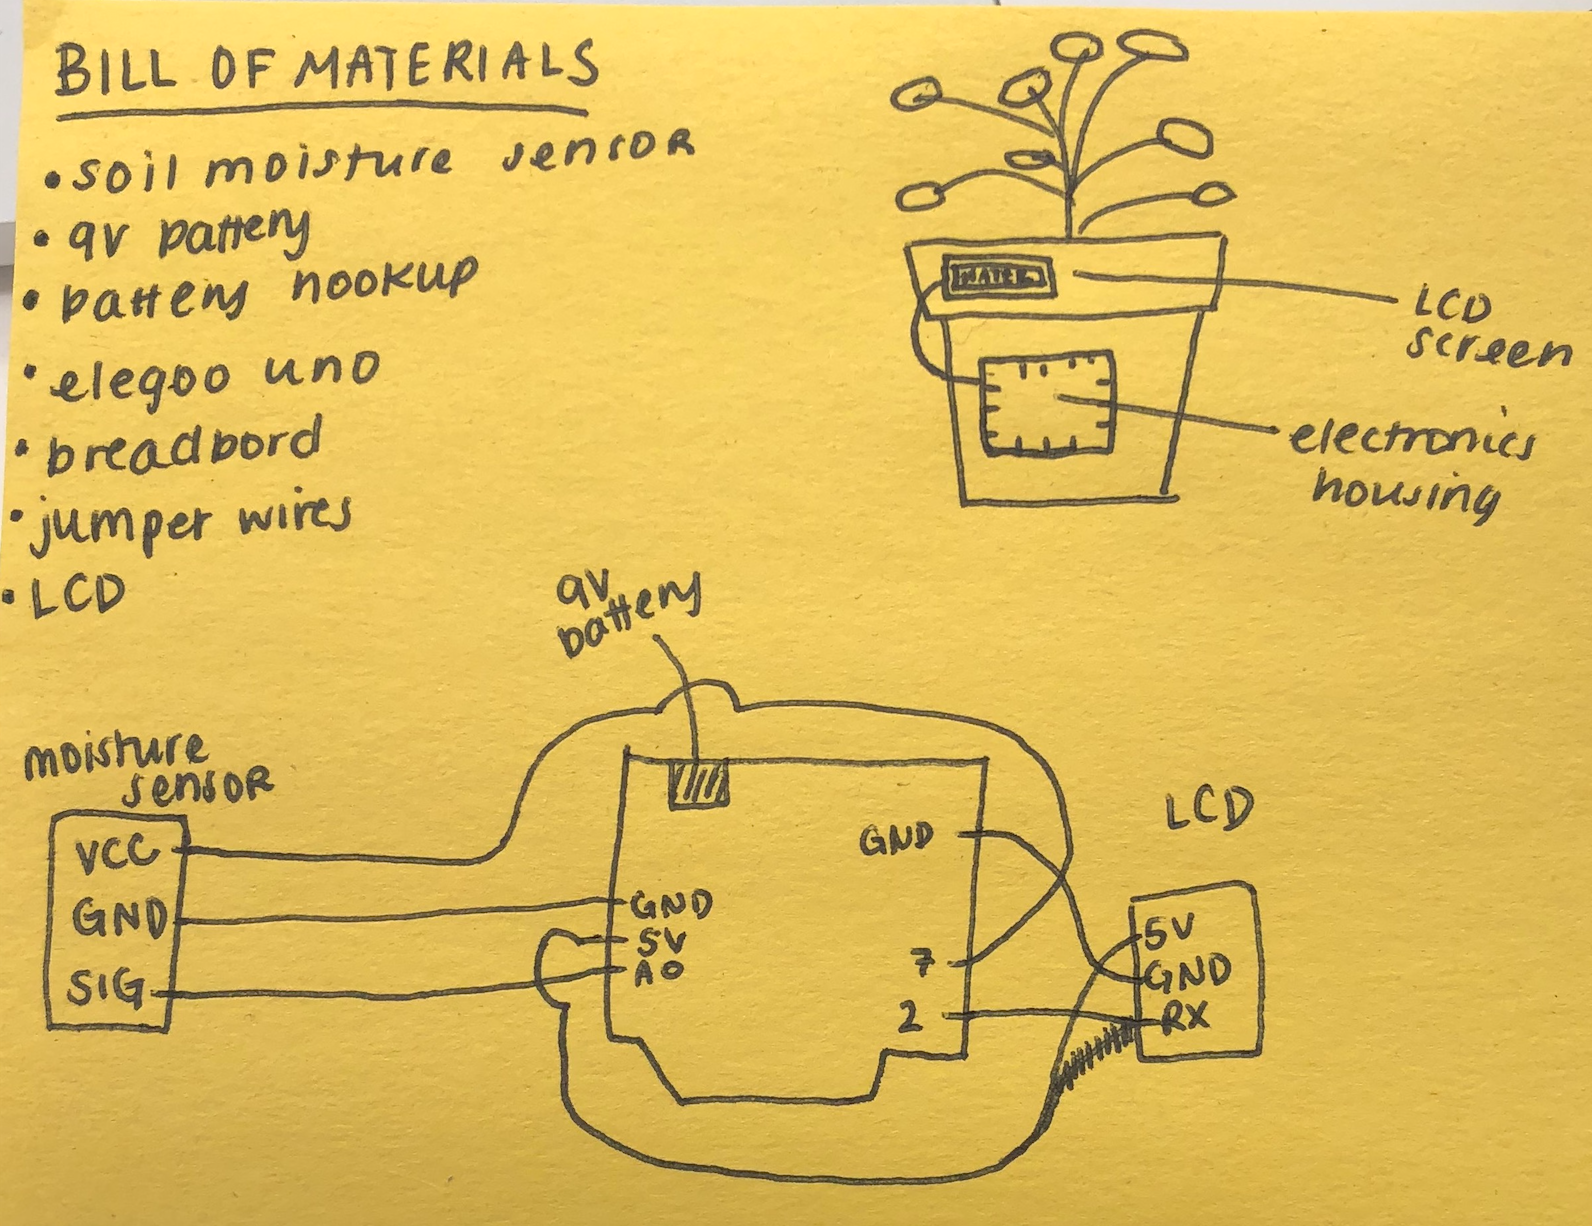 BILL OF MATERIALS
• soil moisture sensor
• 9v battery
• battery hookup
• elegoo uno
• breadbord
• jumper wires
• LCD
WATER
LCD
screen
electronics
housing
9V
battery
moisture
sensor
VCC
GND
SIG
GND
5V
A0
GND
7
2
LCD
5V
GND
RX